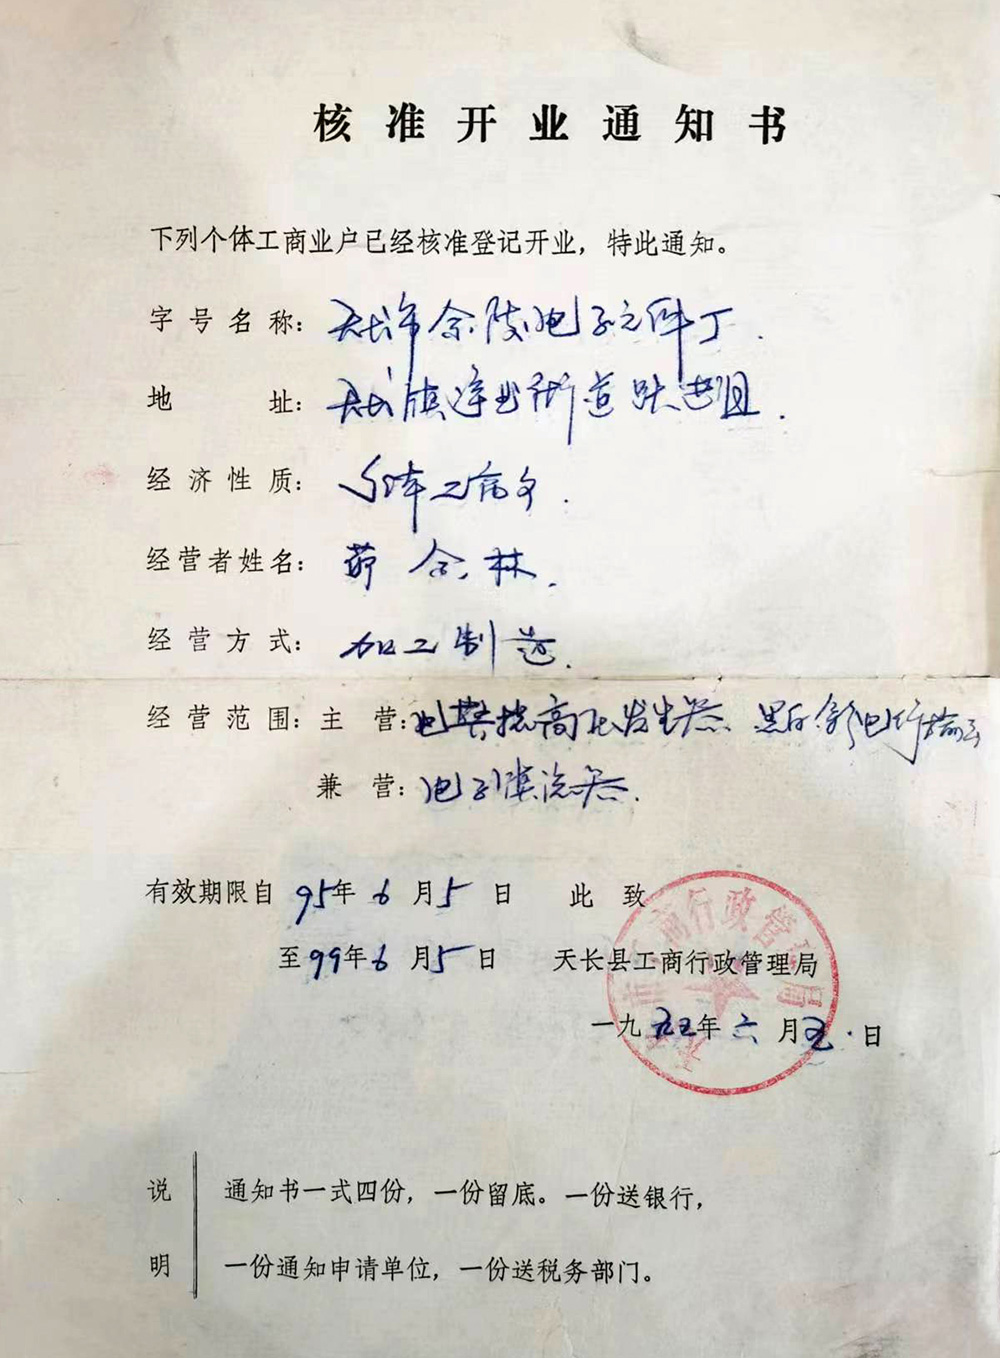 核准开业通知书
下列个体工商业户已经核准登记开业，特此通知。
字号名称：天长市余陵电子元件厂.
地址：天长镇连出街道跃进组.
经济性质：个体工商户.
经营者姓名：茆合林.
经营方式：加工制造.
经营范围：主营：高压发生器、黑白
兼营：电子
有效期限自95年6月5日 此致
至99年6月5日 天长县工商行政管理局
一九九五年六月五日
市工商行政管理局
说明
通知书一式四份，一份留底。一份送银行，
一份通知申请单位，一份送税务部门。